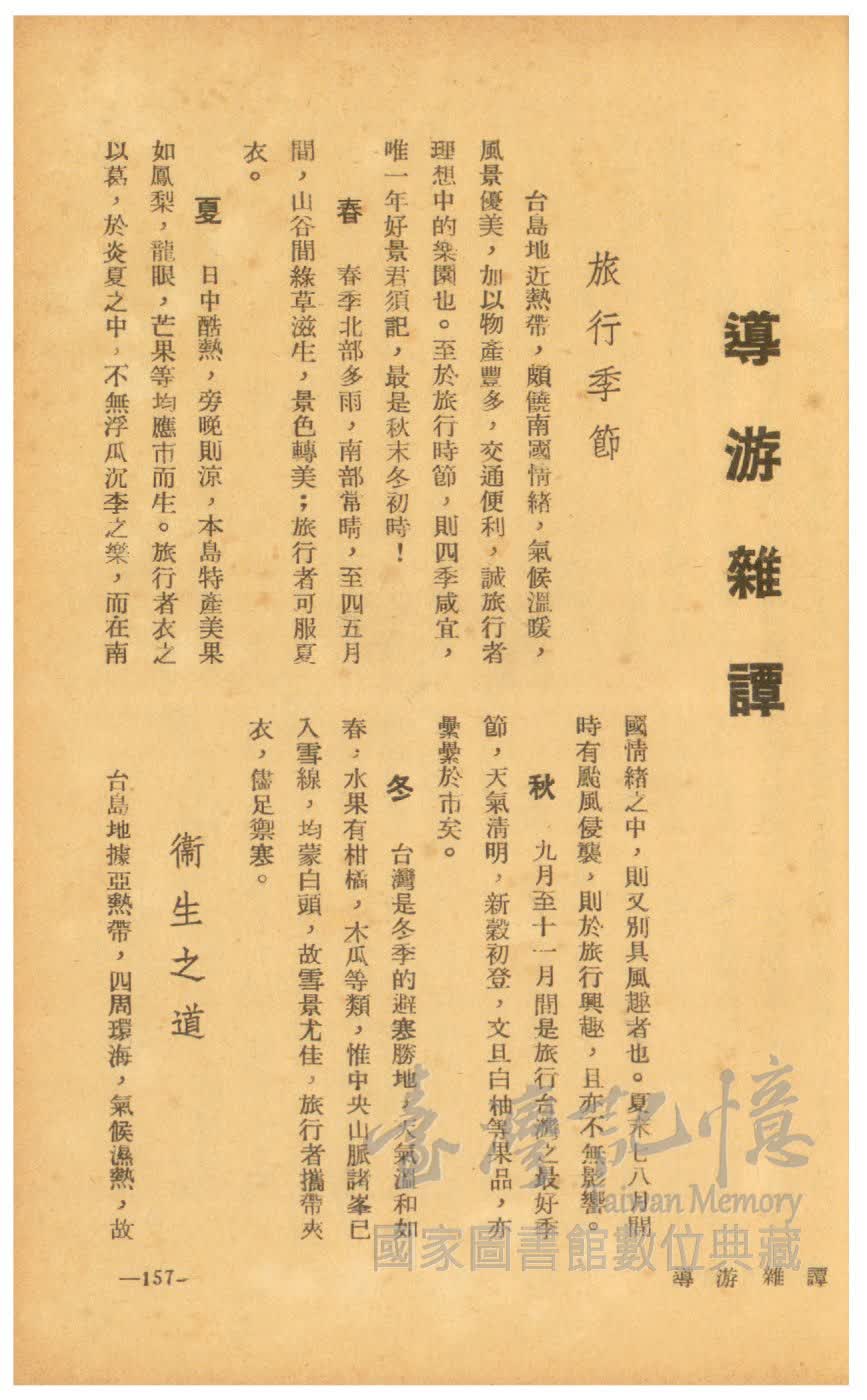 導游雜譚
旅行季節
台島地近熱帶，頗饒南國情緒，氣候溫暖，
風景優美，加以物產豐多，交通便利，誠旅行者
理想中的樂園也。至於旅行時節，則四季咸宜，
唯一年好景君須記，最是秋末冬初時！
春　春季北部多雨，南部常晴，至四五月
間，山谷間綠草滋生，景色轉美；旅行者可服夏
衣。
夏　日中酷熱，旁晚則涼，本島特產美果
如鳳梨，龍眼，芒果等均應市而生。旅行者衣之
以葛，於炎夏之中，不無浮瓜沉李之樂，而在南
國情緒之中，則又別具風趣者也。夏末七八月間
時有颱風侵襲，則於旅行興趣，且亦不無影響。
秋　九月至十一月間是旅行台灣之最好季
節，天氣清明，新穀初登，文旦白柚等果品，亦
纍纍於市矣。
冬　台灣是冬季的避寒勝地，天氣溫和如
春；水果有柑橘，木瓜等類，惟中央山脈諸峯已
入雪線，均蒙白頭，故雪景尤佳，旅行者攜帶夾
衣，儘足禦寒。
衞生之道
台島地據亞熱帶，四周環海，氣候濕熱，故
導游雜譚
—157—
臺灣記憶
Taiwan Memory
國家圖書館數位典藏